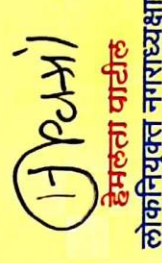 हेमलता पाटील
लोकनियुक्त नगराध्यक्षा